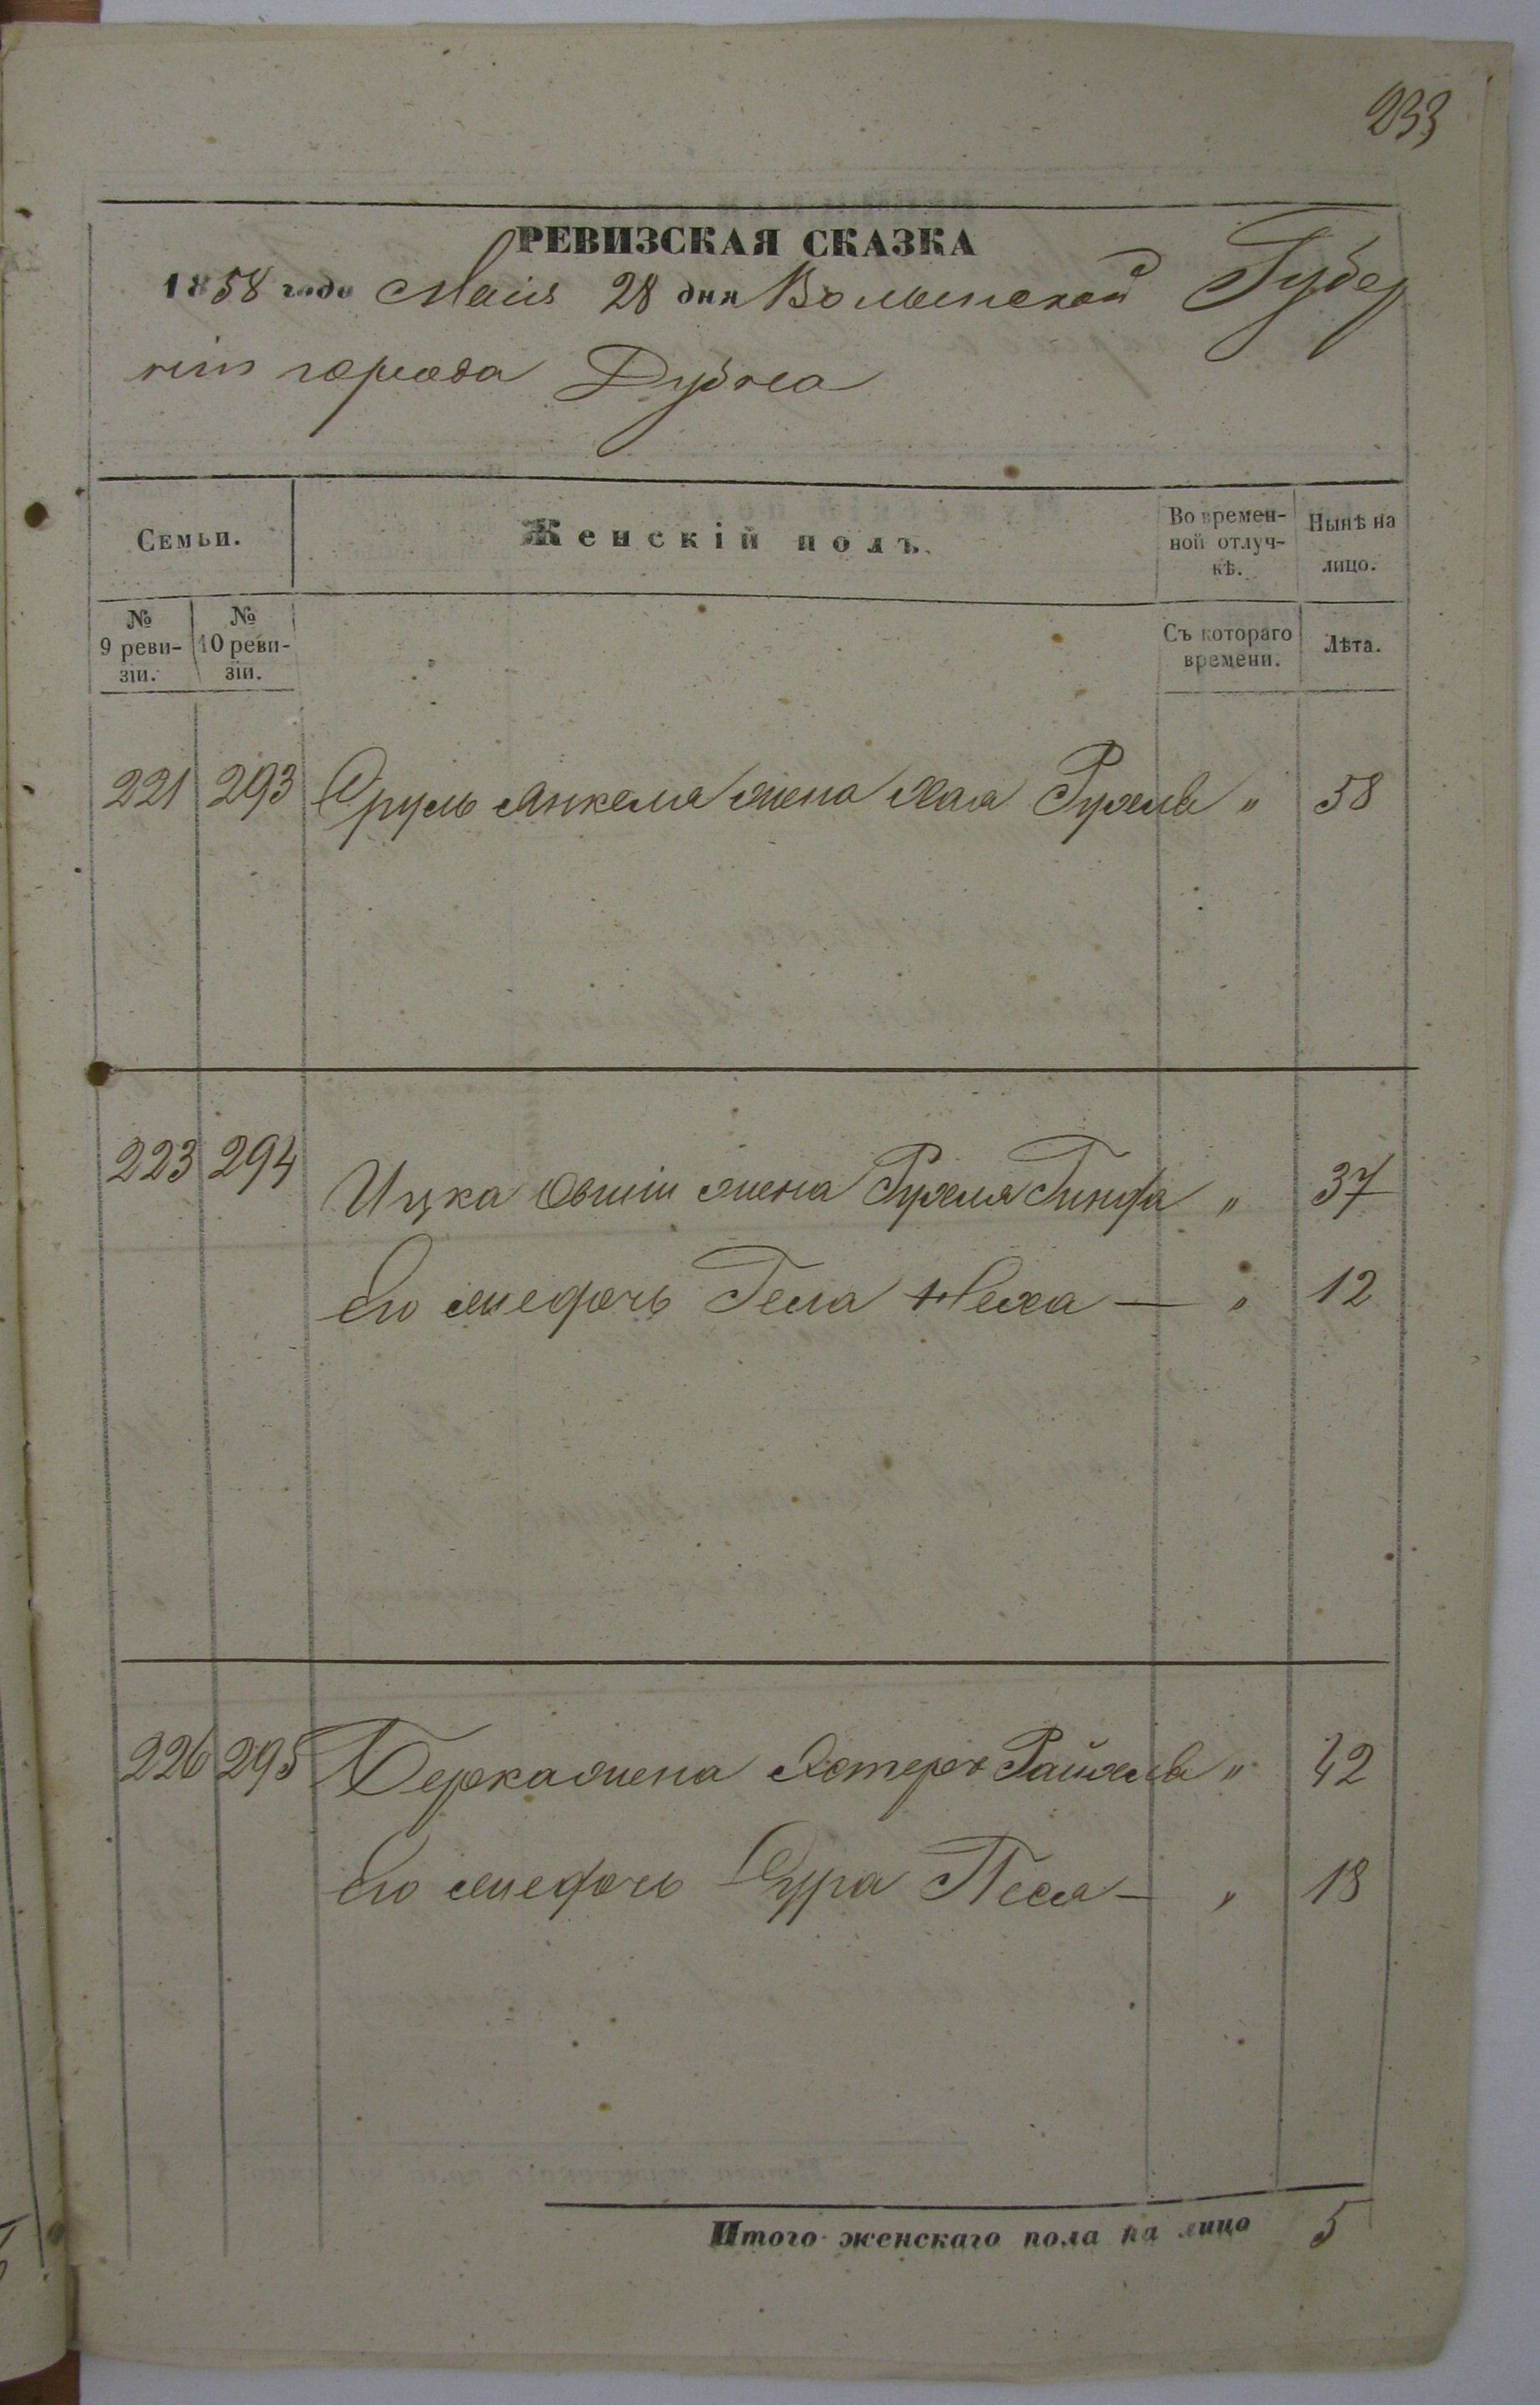 233
РЕВИЗСКАЯ СКАЗКА
1858 года Маія 28 дня Волынской Губер
ніи города Дубна
Семьи.
Женскій полъ.
Во времен-
ной отлуч-
кѣ.
Нынѣ на
лицо.
№
9 реви-
зіи.
№
10 реви-
зіи.
Съ котораго
времени.
Лѣта.
221 293 Сруль Янкеля жена Хая Рухль " 58
223 294 Ицка Овшіи жена Рухля Гинда " 37
Его жедочь Гела Неха — " 12
226 295 Берка жена Эстеръ Райхль " 42
Его жедочь Сура Песя — " 18
Итого женскаго пола на лицо 5